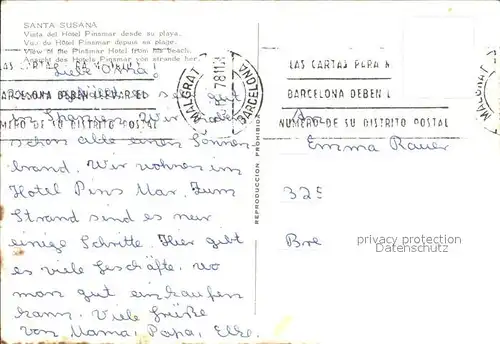 SANTA SUSANA
Vista del Hotel Pinsmar desde su playa.
Vue du Hôtel Pinsmar depuis sa plage.
View of the Pinsmar Hotel from his beach.
Ansicht des Hotels Pinsmar von strande her.
LAS CARTAS PARA
BARCELONA DEBEN LLEVAR EL
NUMERO DE SU DISTRITO POSTAL
MALGRAT
BARCELONA
LAS CARTAS PARA
BARCELONA DEBEN L
NUMERO DE SU DISTRITO POSTAL
MALGRAT
Liebe Oma!
es gut
Spanien. Wir haben
schon alle einen Sonnen-
brand. Wir wohnen im
Hotel Pins Mar. Zum
Strand sind es nur
einige Schritte. Hier gibt
es viele Geschäfte, wo
man gut einkaufen
kann. Viele Grüße
von Mama, Papa, Elke.
REPRODUCCION PROHIBIDA
Emma Rauer
325
Bre
privacy protection
Datenschutz